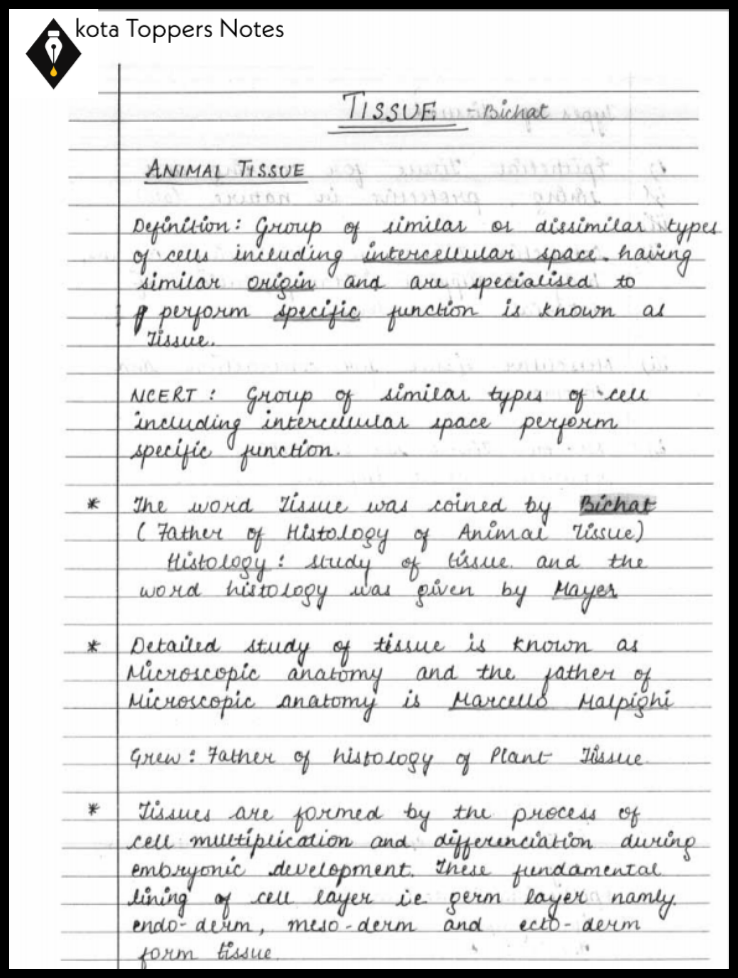 kota Toppers Notes
TISSUE - Bichat
ANIMAL TISSUE
Definition : Group of similar or dissimilar types
of cells including intercellular space. having
similar origin and are specialised to
perform specific function is known as
Tissue.
NCERT : Group of similar types of cell
including intercellular space perform
specific function.
* The word Tissue was coined by Bichat
( Father of Histology of Animal Tissue)
Histology : study of tissue and the
word histology was given by Mayer
* Detailed study of tissue is known as
Microscopic anatomy and the father of
Microscopic anatomy is Marcello Malpighi
Grew : Father of histology of Plant Tissue
* Tissues are formed by the process of
cell multiplication and differenciation during
embryonic development. These fundamental
lining of cell layer i.e germ layer namly.
endo-derm, meso-derm and ecto-derm
form tissue.